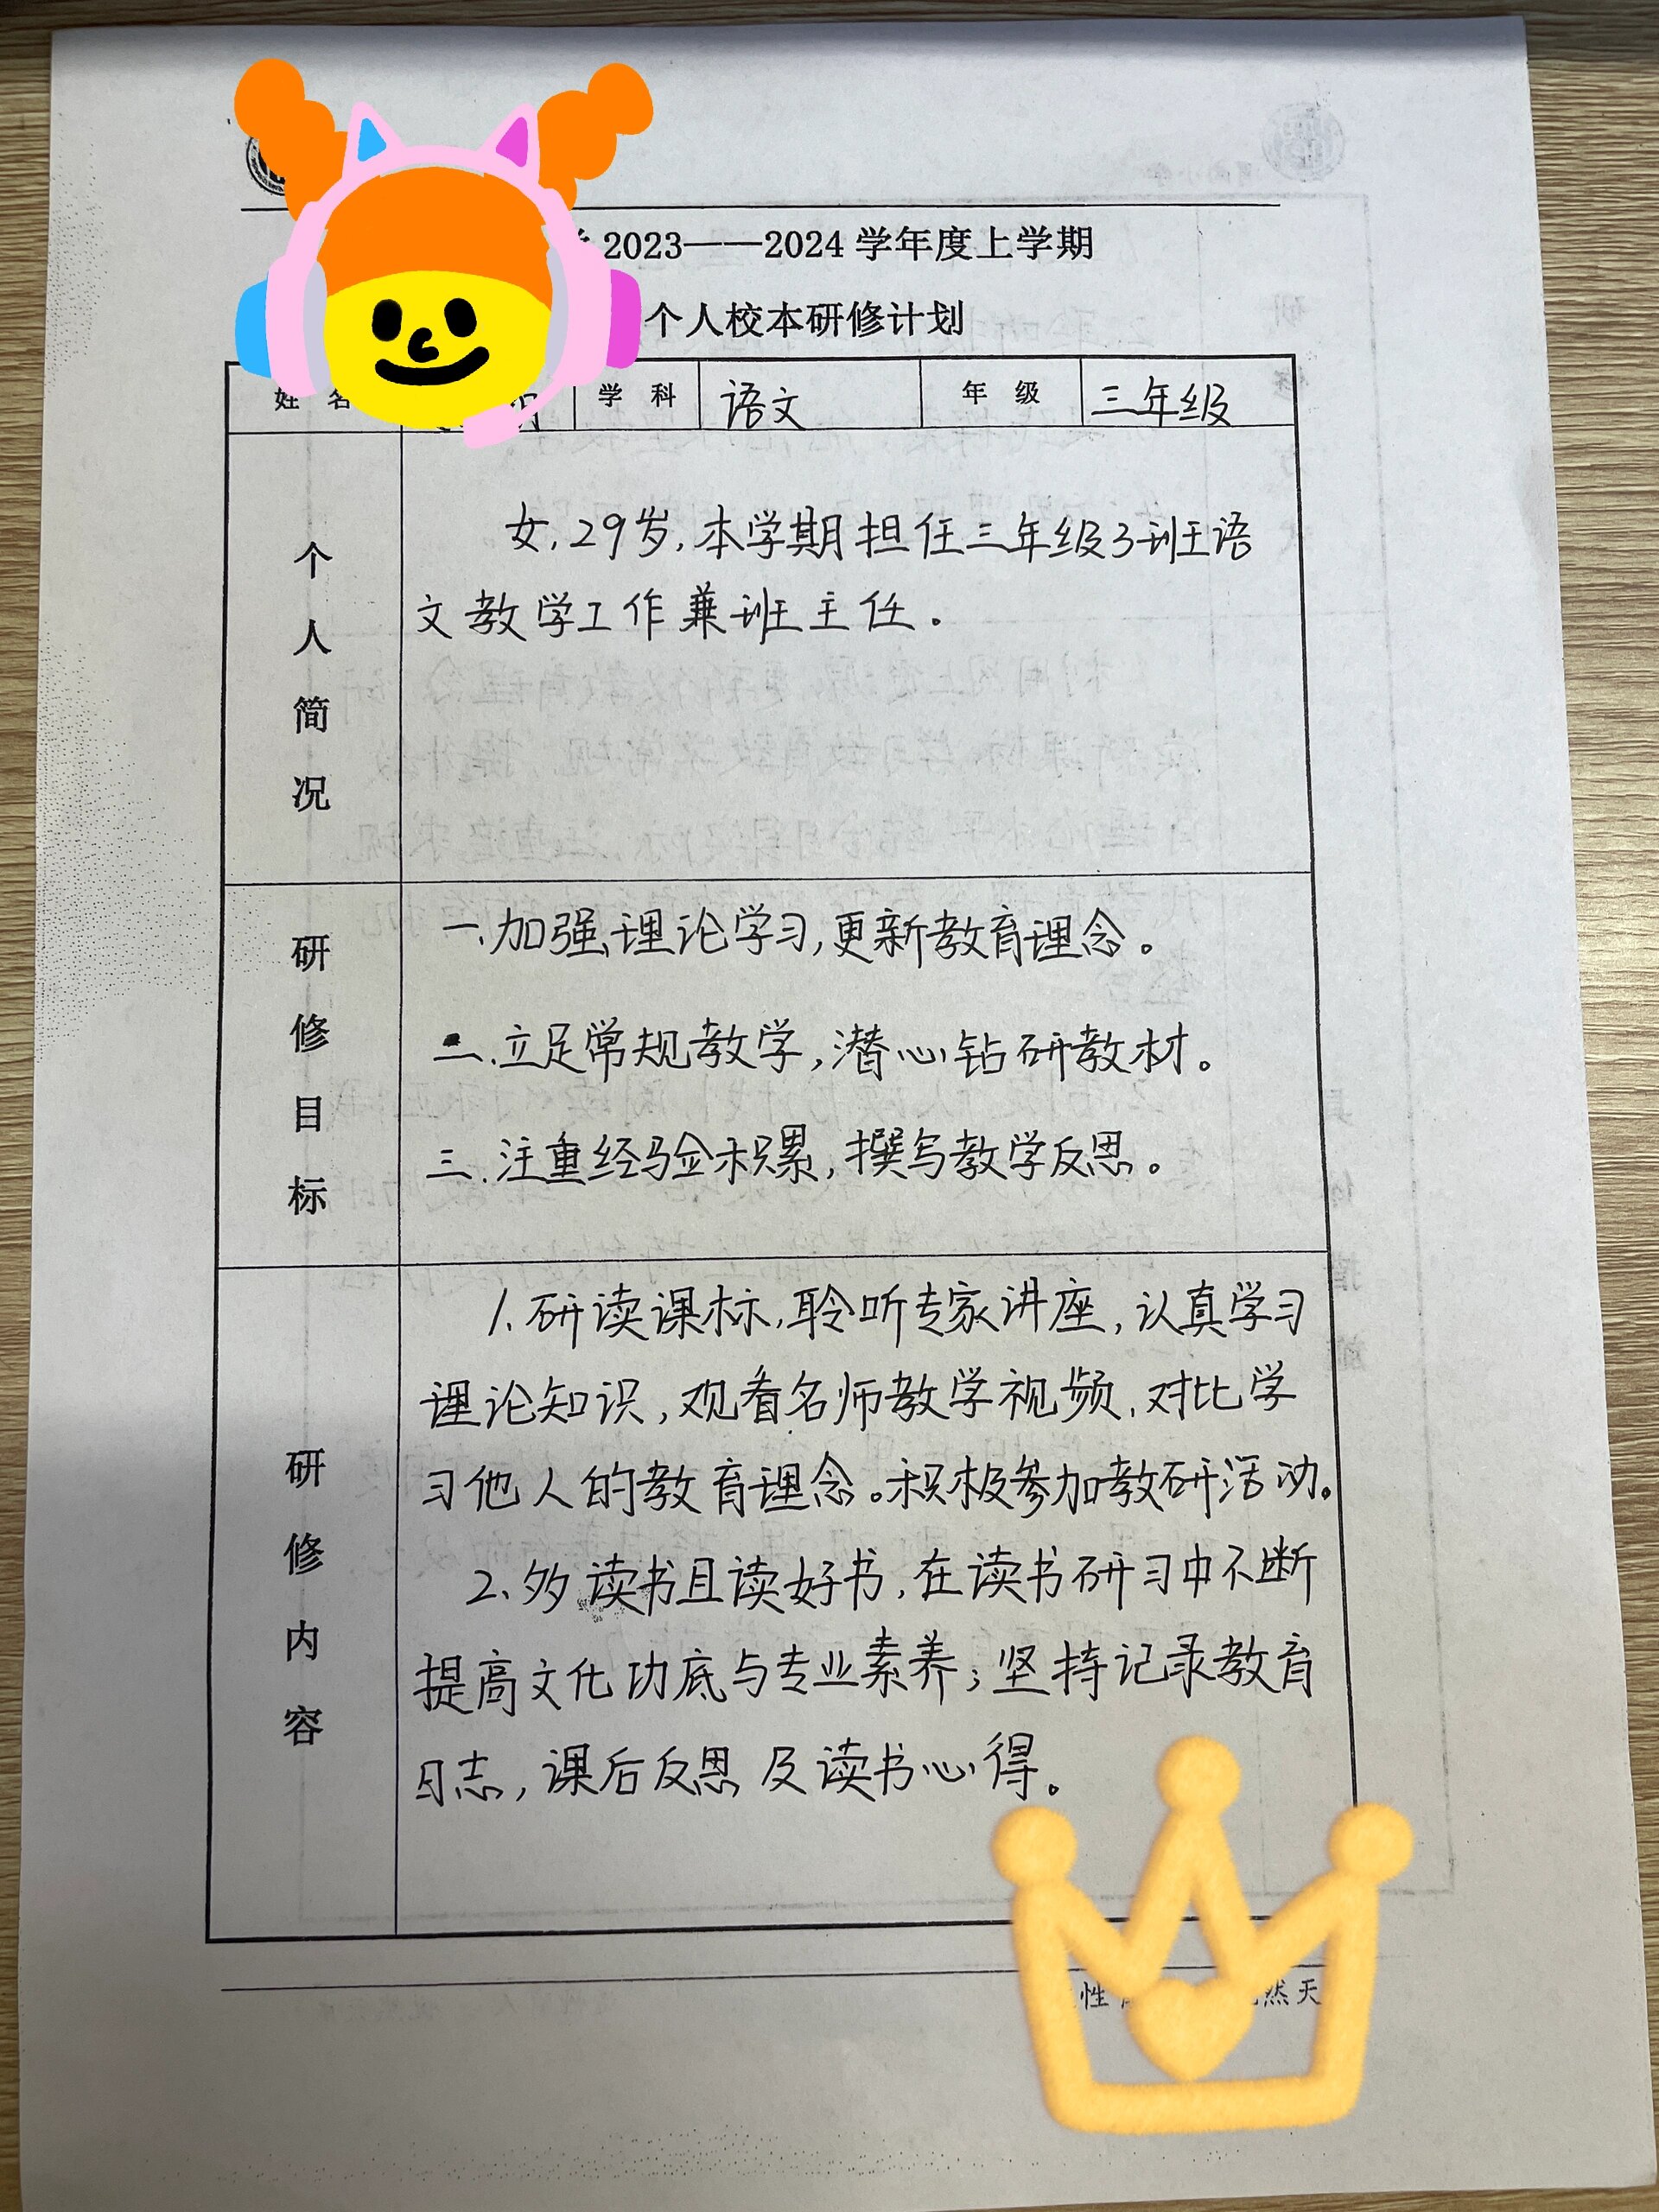 2023——2024学年度上学期
个人校本研修计划
姓 名 学 科 语文 年 级 三年级
个人简况
女,29岁,本学期担任三年级3班语
文教学工作兼班主任.
研修目标
一.加强理论学习,更新教育理念。
二.立足常规教学,潜心钻研教材。
三.注重经验积累,撰写教学反思。
研修内容
1.研读课标,聆听专家讲座,认真学习
理论知识,观看名师教学视频,对比学
习他人的教育理念。积极参加教研活动。
2.多读书且读好书,在读书研习中不断
提高文化功底与专业素养;坚持记录教育
日志,课后反思及读书心得。
性 然天